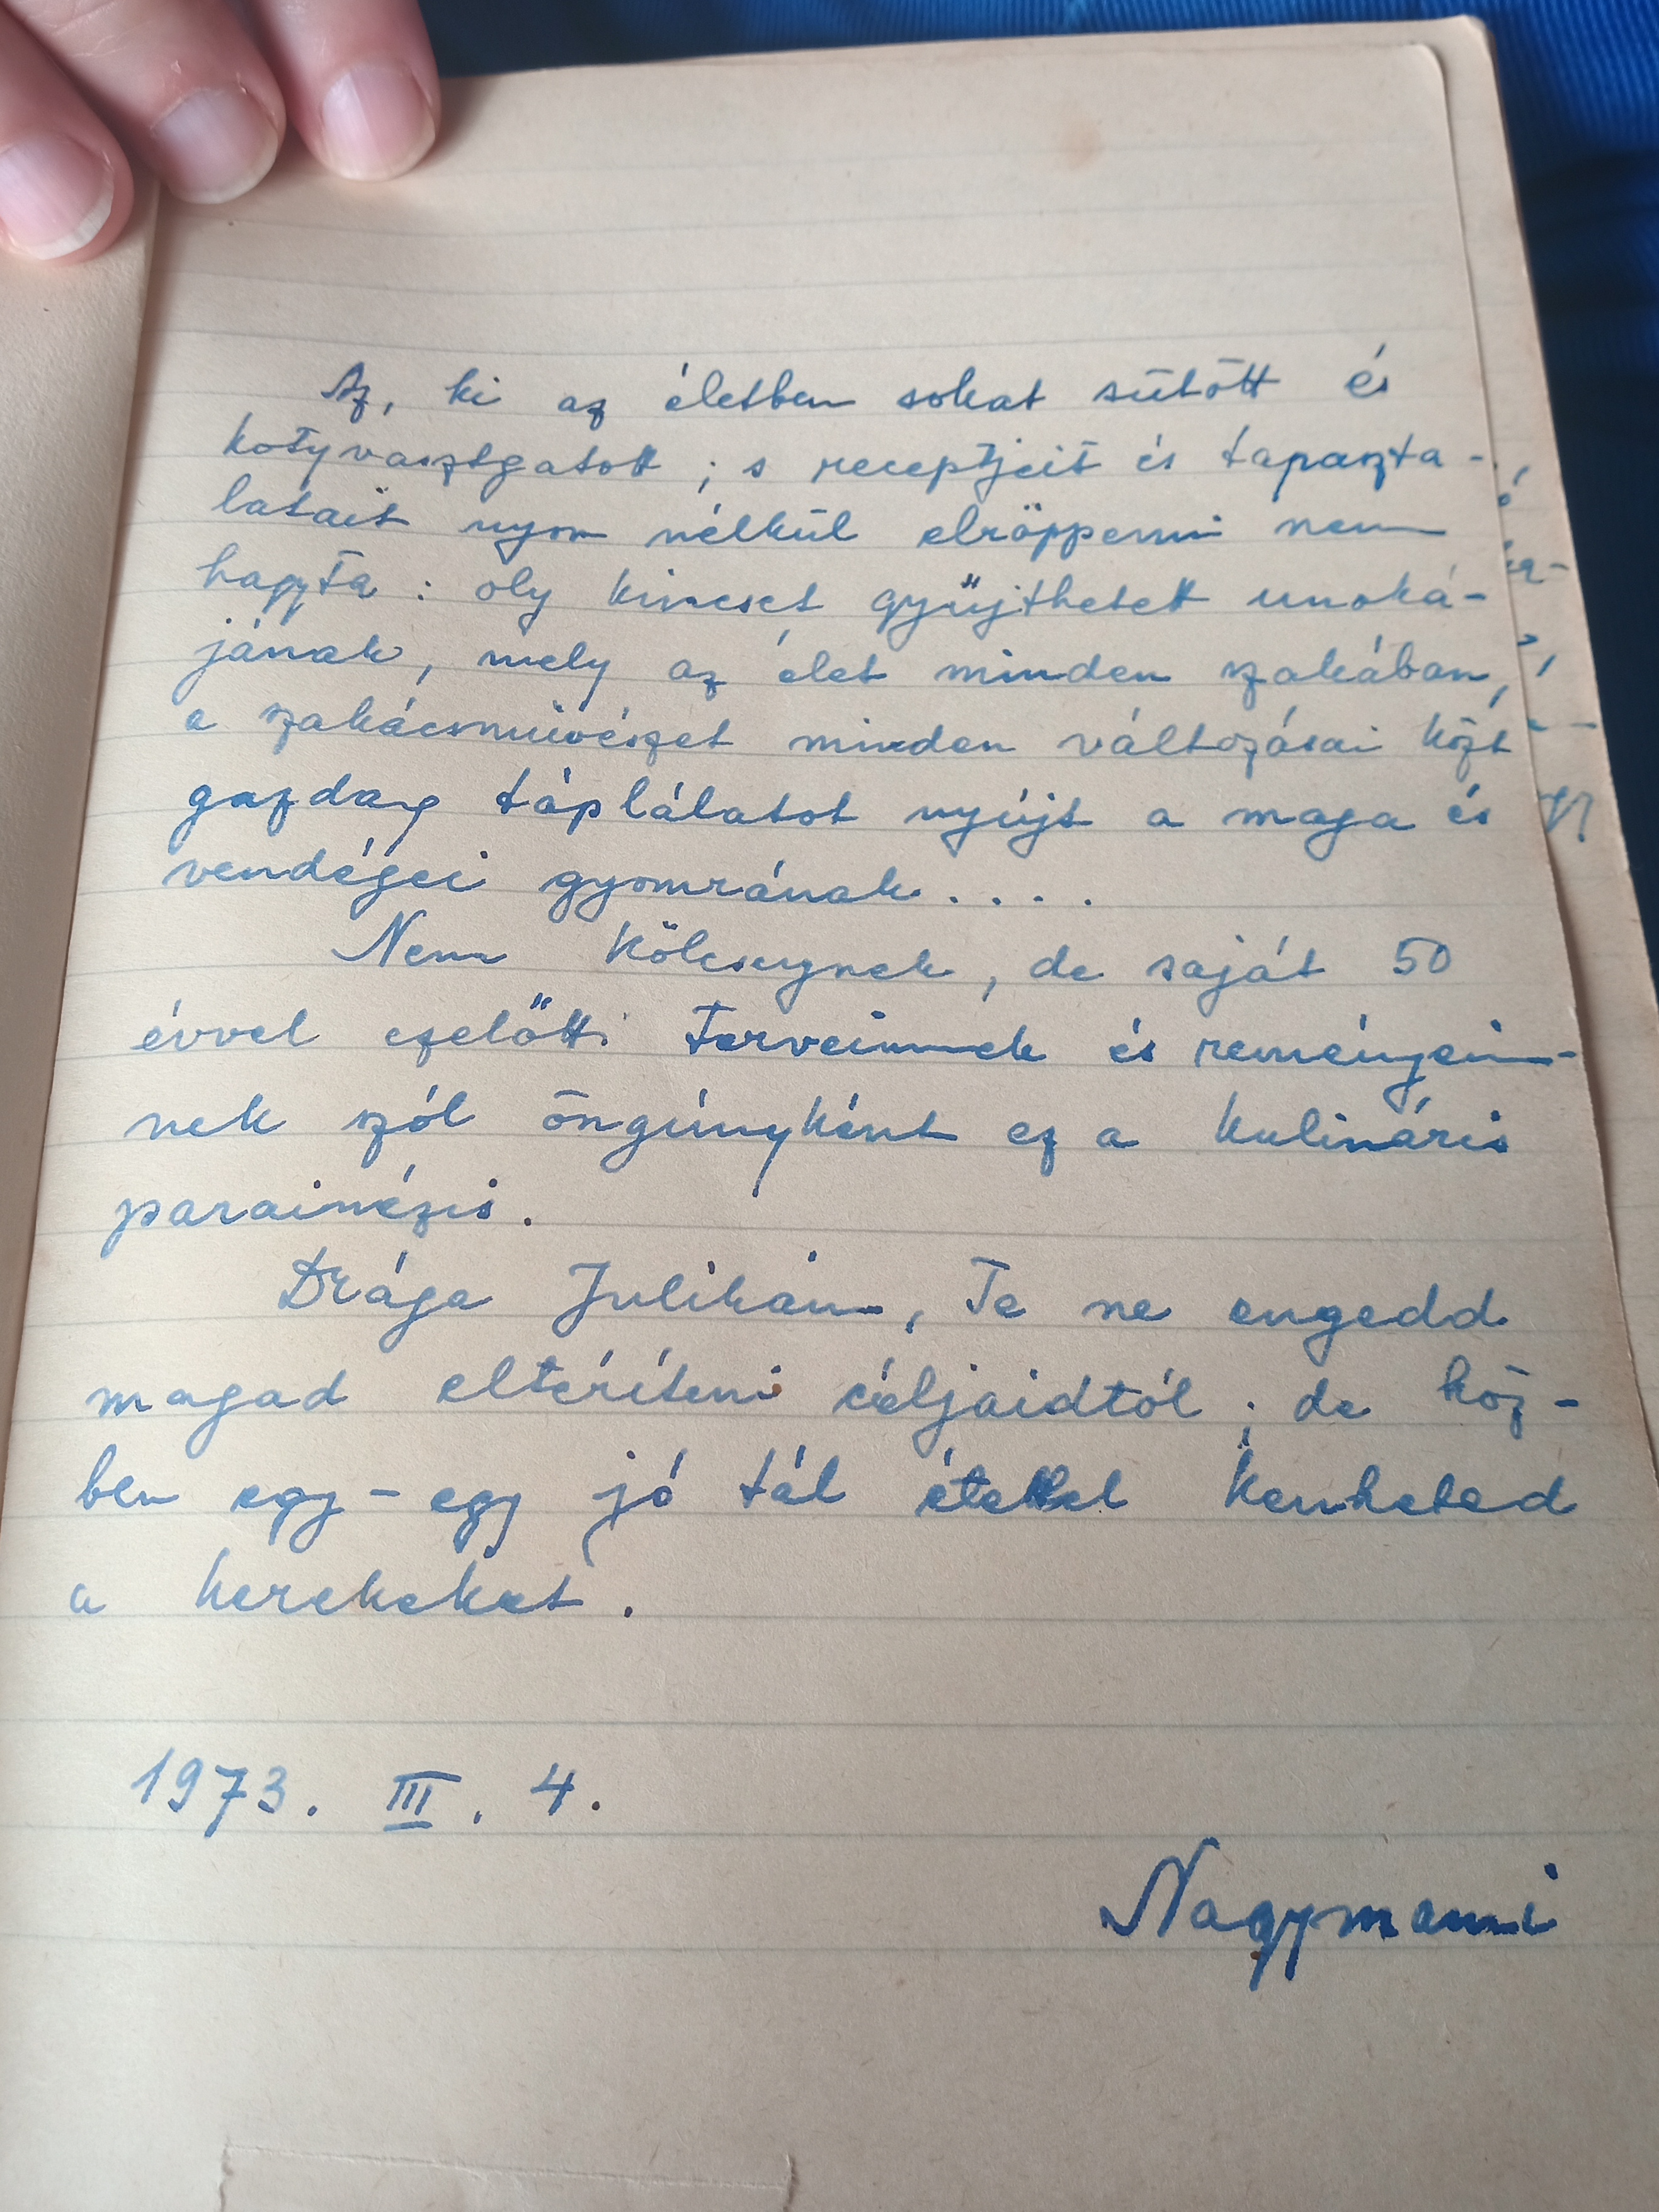 Az, ki az életben sokat sütött és
kotyvasztgatott ; s receptjeit és tapaszta-
latait nyom nélkül elröppenni nem
hagyta : oly kincset gyűjthetett unoká-
jának, mely az élet minden szakában,
a szakácsművészet minden változásai közt
gazdag táplálatot nyújt a maga és
vendégei gyomrának . . . .
Nem Kölcseynek, de saját 50
évvel ezelőtti terveimnek és reményeim-
nek szól öngúnyként ez a kulináris
parainézis.
Drága Julikám, Te ne engedd
magad eltéríteni céljaidtól ; de köz-
ben egy-egy jó tál étellel kenheted
a kerekeket.
1973. III. 4.
Nagymami